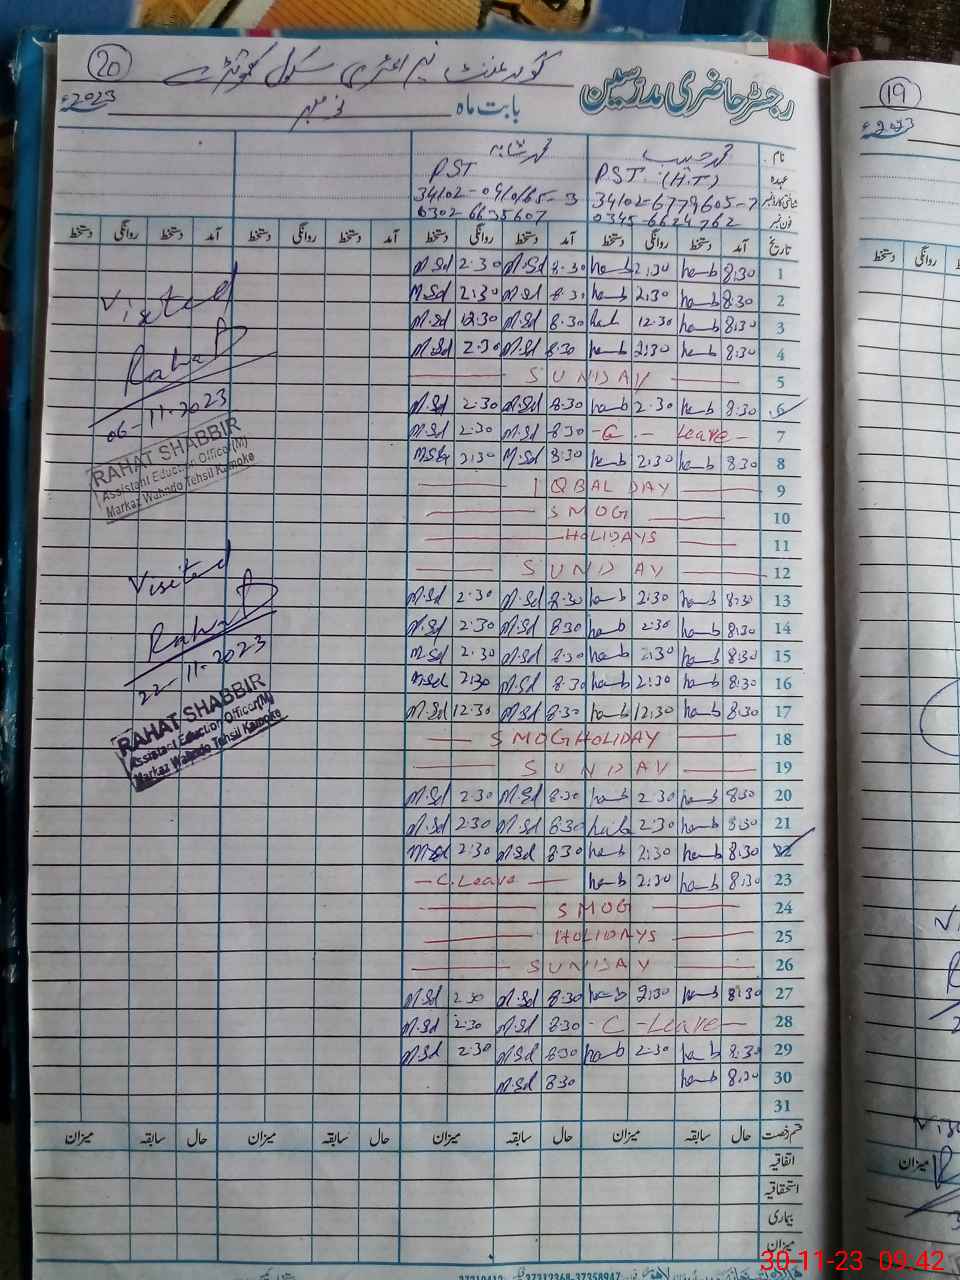 20 گورنمنٹ پرائمری سکول
رجسٹر حاضری مدرسین
بابت ماہ نومبر 2023ء
نام محمد حبیب محمد شاہد
عہدہ PST (H.T) PST
شناختی کارڈ نمبر 34102-6779605-7
فون نمبر 0345-6624762 0302-6635607
تاریخ آمد دستخط روانگی دستخط آمد دستخط روانگی دستخط آمد دستخط روانگی دستخط آمد دستخط روانگی دستخط
1 8:30 2:30 8:30 M.Sd 2:30 M.Sd
2 8:30 2:30 8:3 M.Sd 2:30 M.Sd
3 8:30 12:30 8:30 M.Sd 12:30 M.Sd
4 8:30 2:30 8:30 M.Sd 2:30 M.Sd
5 SUNDAY
6 8:30 2:30 8:30 M.Sd 2:30 M.Sd
7 C. Leave 8:30 M.Sd 2:30 M.Sd
8 8:30 2:30 8:30 M.Sd 2:30 M.Sd
9 IQBAL DAY
10 SMOG
11 HOLIDAYS
12 SUNDAY
13 8:30 2:30 8:30 M.Sd 2:30 M.Sd
14 8:30 2:30 8:30 M.Sd 2:30 M.Sd
15 8:30 2:30 8:30 M.Sd 2:30 M.Sd
16 8:30 2:30 8:30 M.Sd 2:30 M.Sd
17 8:30 12:30 8:30 M.Sd 12:30 M.Sd
18 SMOG HOLIDAY
19 SUNDAY
20 8:30 2:30 8:30 M.Sd 2:30 M.Sd
21 8:30 2:30 8:30 M.Sd 2:30 M.Sd
22 8:30 2:30 8:30 M.Sd 2:30 M.Sd
23 8:30 2:30 C. Leave
24 SMOG
25 HOLIDAYS
26 SUNDAY
27 8:30 2:30 8:30 M.Sd 2:30 M.Sd
28 C-Leave 8:30 M.Sd 2:30 M.Sd
29 8:30 2:30 8:30 M.Sd 2:30 M.Sd
30 8:30 8:30 M.Sd
31
قسم رخصت حال سابقہ میزان حال سابقہ میزان حال سابقہ میزان حال سابقہ میزان
اتفاقیہ
استحقاقیہ
بیماری
میزان
37312368-37358947
Visited
06-11-2023
RAHAT SHABBIR
Assistant Education Officer(M)
Markaz Wahndo Tehsil Kamoke
Visited
22-11-2023
RAHAT SHABBIR
Assistant Education Officer(M)
Markaz Wahndo Tehsil Kamoke
19
2023ء
دستخط روانگی دستخط
میزان
30-11-23 09:42